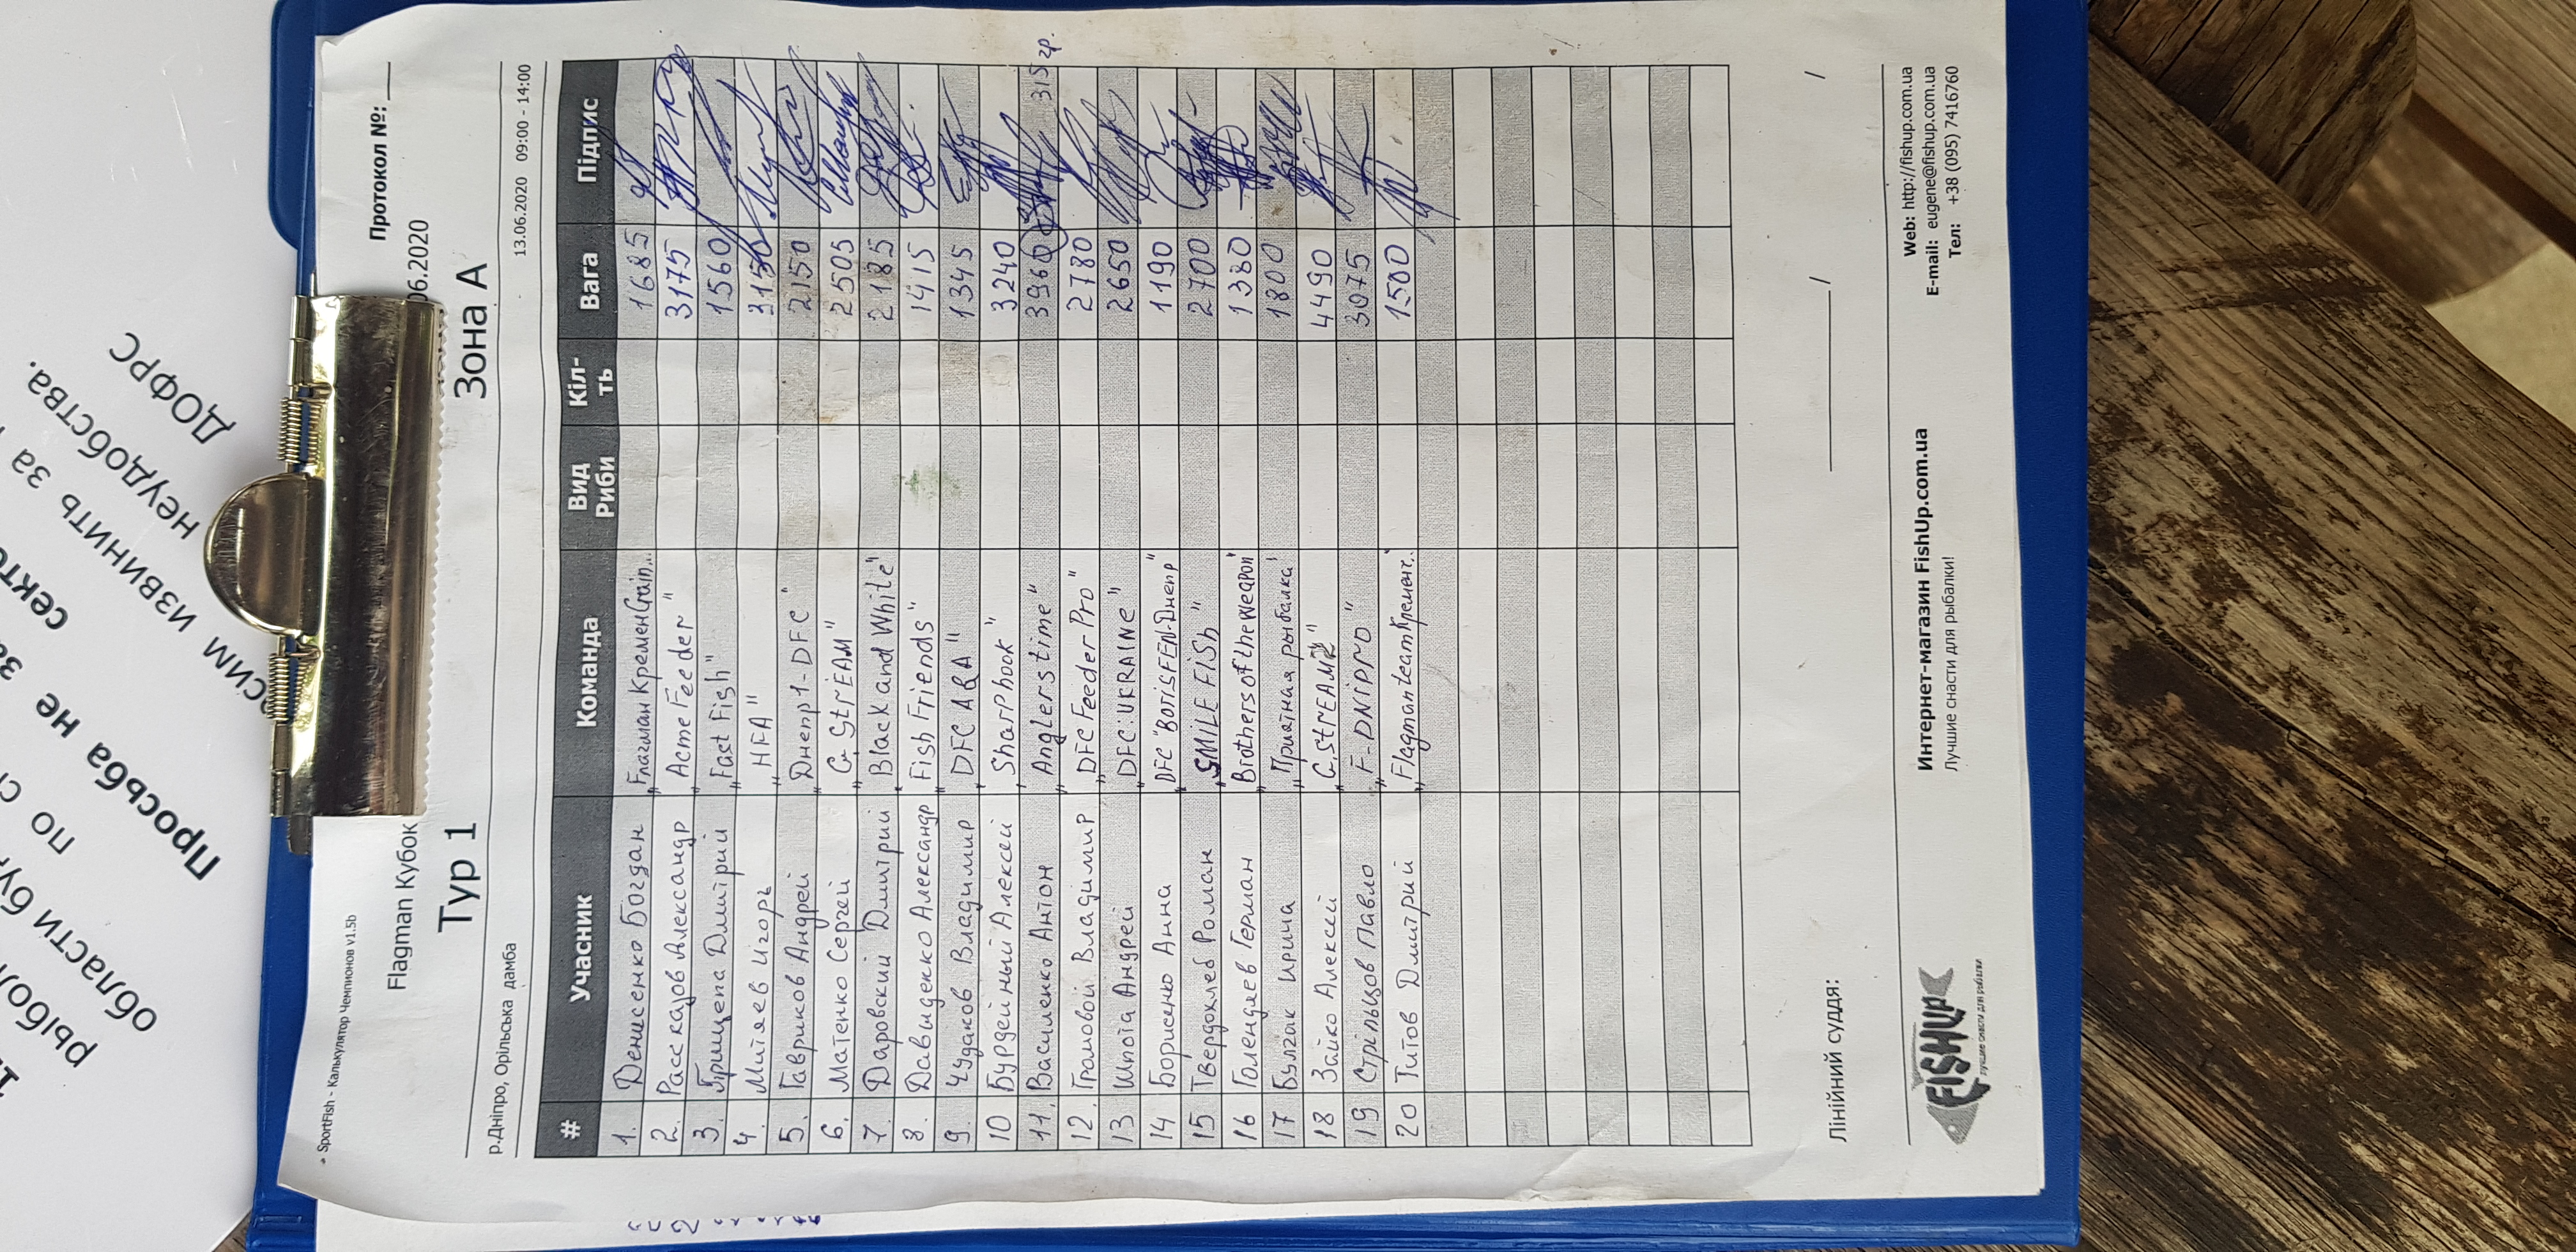 ДОфРС
неудобства.
извинить за
Просьба не
по
области
SportFish - Калькулятор Чемпионов v1.5b
Протокол №: ___
Flagman Кубок
06.2020
Тур 1 Зона А
р.Дніпро, Орільська дамба 13.06.2020 09:00 - 14:00
# Учасник Команда Вид Риби Кіл-ть Вага Підпис
1. Денисенко Богдан "Флагман КременGrain.. 1685
2. Рассказов Александр "Acme Feeder" 3175
3. Грищепа Дмитрий "Fast Fish" 1560
4. Митяев Игорь "HFA" 3150
5. Гавриков Андрей "Днепр1-DFC" 2150
6. Матенко Сергей "G.StrEAM" 2505
7. Даровский Дмитрий "Black and White" 2185
8. Давыденко Александр "Fish Friends" 1415
9. Чудаков Владимир "DFC AQA" 1345
10 Бурдейный Алексей "Sharphook" 3240
11. Василенко Антон "Anglers time" 3960 315 гр.
12. Громовой Владимир "DFC Feeder Pro" 2780
13 Шпота Андрей "DFC:UKRAINE" 2650
14 Борисенко Анна DFC "BorisFEN-Днепр" 1190
15 Твердохлеб Роман "SMILE FiSh" 2700
16 Голендяев Герман "Brothers of the weapon" 1380
17 Булгак Ирина "Приятная рыбалка" 1800
18 Зайко Алексей "G.StrEAM" 4490
19 Стрільцов Павло "F-DNIPRO" 3075
20 Титов Дмитрий "Flagman team Кременч." 1500
Лінійний суддя: ____________/ /
FISHUP
лучшие снасти для рыбалки
Интернет-магазин FishUp.com.ua
Лучшие снасти для рыбалки!
Web: http://fishup.com.ua
E-mail: eugene@fishup.com.ua
Тел: +38 (095) 7416760